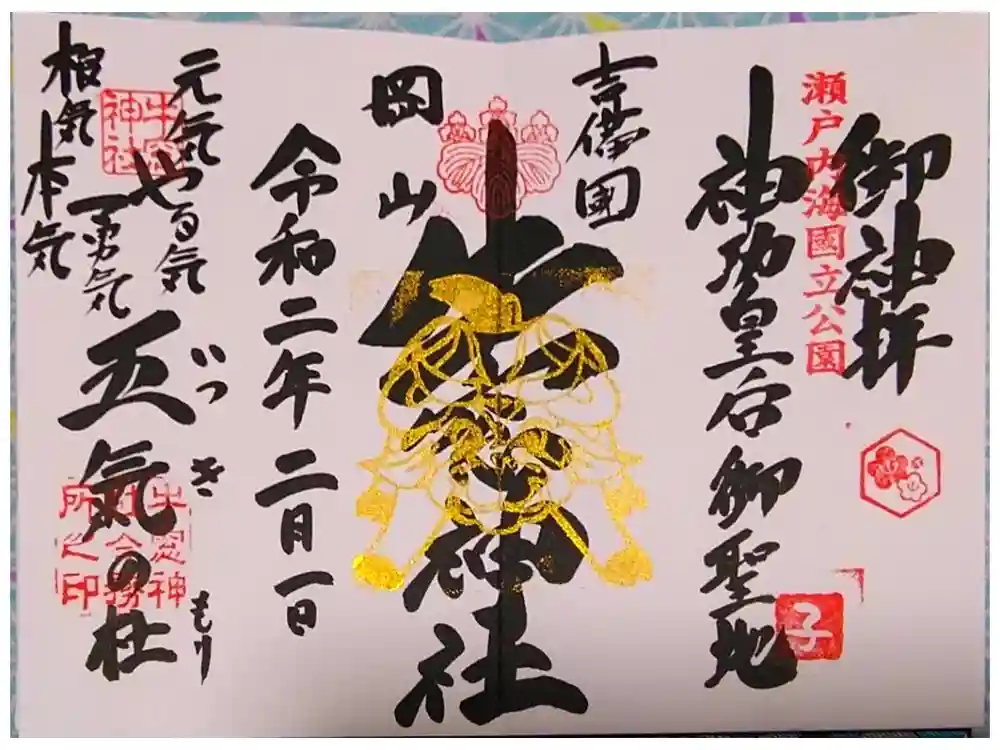 御神拝
瀬戸内海國立公園
神功皇后御聖地
子
吉備國
牛窓神社
岡山
令和二年二月一日
元気やる気
勇気
根気本気
牛窓
神社
五気の杜
いつき もり
牛窓神
社社務
所之印